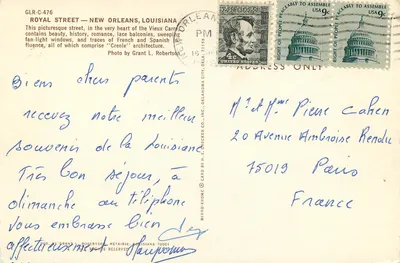 GLR-C-476
ROYAL STREET — NEW ORLEANS, LOUISIANA
This picturesque street, in the very heart of the Vieux Carre
contains beauty, history, romance, lace balconies, sweeping
fan-light windows, and traces of French and Spanish
fluence, all of which comprise "Creole" architecture.
Photo by Grant L. Robertson
Biens chers parents
recevez notre meilleur
souvenir de la Louisiane.
Très bon séjour, à
dimanche au téléphone
vous embrasse bien
affectueusement
NEW ORLEANS
PM
USA 9c
USA 9c
ADDRESS ONLY
Mr et Mme Pierre Cahen
20 Avenue Ambroise Rendu
75019 Paris
France